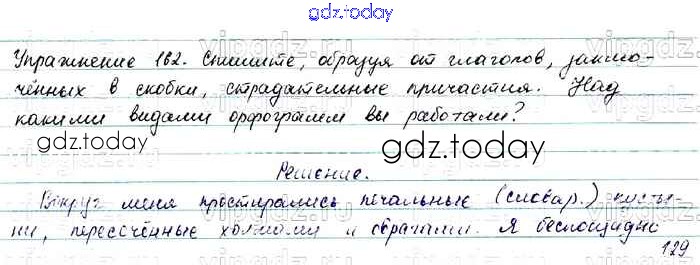 gdz.today
Упражнение 162. Спишите, образуя от глаголов, заклю-
чённых в скобки, страдательные причастия. Над
какими видами орфограмм вы работали?
gdz.today
gdz.today
Решение.
Вокруг меня простирались печальные (словар.) пусты-
ни, пересечённые холмами и оврагами. Я беспощадно
129